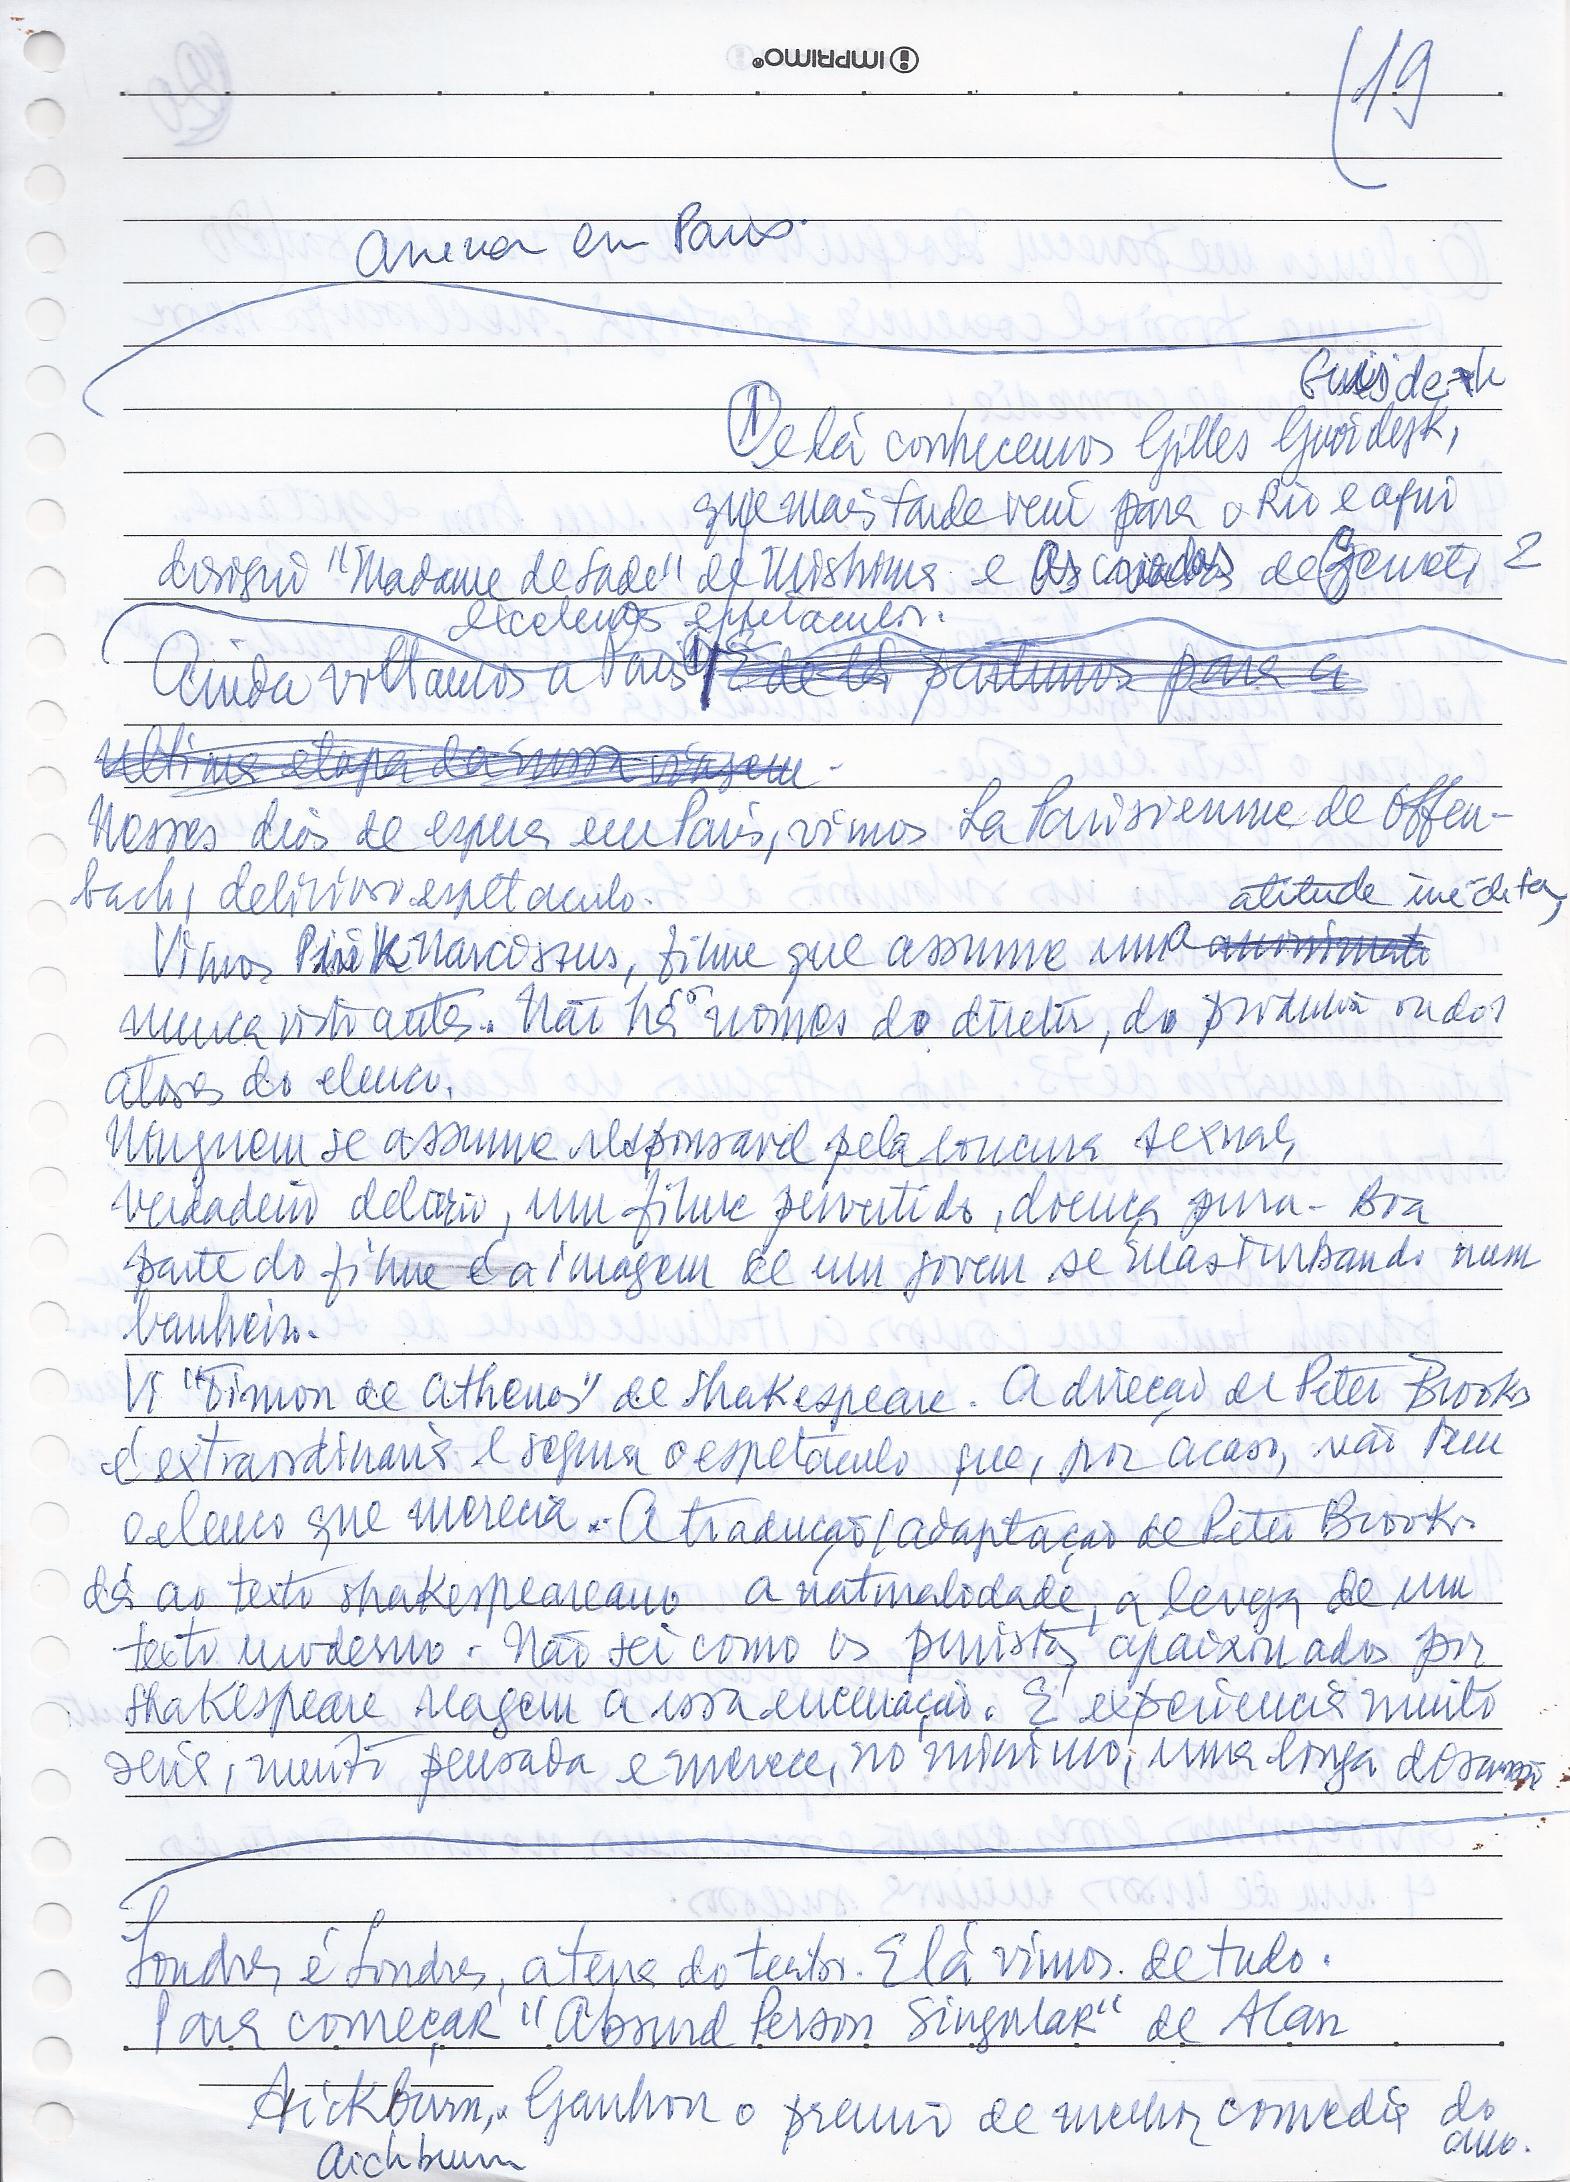 IMPRIMO
19
Anexar em Paris.
① E lá conhecemos Gilles Gwidesk,
que mais tarde veni para o Rio e aqui
dirigiu "Madame de Sade" de Mishima e As criadas de Genet, 2
excelentes espetáculos.
Ainda voltamos a Paris ① E de lá partimos para a
ultima etapa da nossa viagem.
Nesses dias de espera em Paris, vimos La Parisienne de Offen-
bach, delirioso espetaculo.
atitude inédita,
Vimos Pink Narcissus, filme que assume uma
nunca visto antes. Não há os nomes do diretor, do produtor ou dos
atores do elenco.
Ninguem se assume responsavel pela loucura sexual,
verdadeiro delírio, um filme pervertido, doença pura - Boa
parte do filme é a imagem de um jovem se masturbando num
banheiro.
Vi "Timon de Athenas" de Shakespeare. A direção de Peter Brooks
é extraordinaria e segura o espetáculo que, por acaso, não tem
o elenco que merecia. A tradução/adaptação de Peter Brooks
dá ao texto shakespeareano a naturalidade, a leveza de um
texto moderno. Não sei como os puristas apaixonados por
Shakespeare reagem a essa encenação. É experiencia muito
seria, muito pensada e merece, no minimo, uma longa discussão
Londres é Londres, a terra do teatro. E lá vimos de tudo.
Para começar "Absurd Person Singular" de Alan
Aickburn, Ganhou o premio de melhor comedia do
ano.
Aichburn